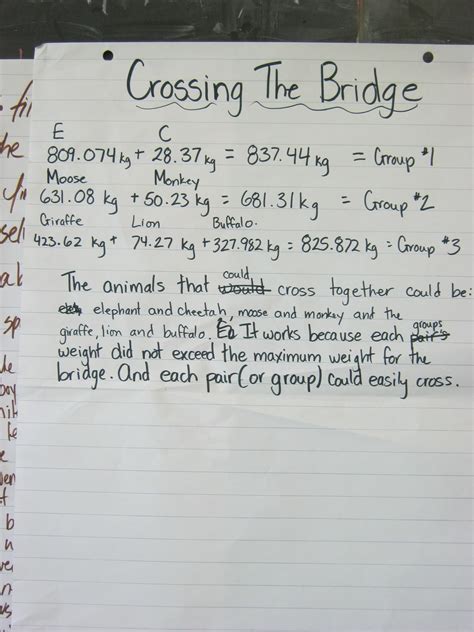 Crossing The Bridge
E C
809.074 kg + 28.37 kg = 837.44 kg = Group #1
Moose Monkey
631.08 kg + 50.23 kg = 681.31 kg = Group #2
Giraffe Lion Buffalo.
423.62 kg + 74.27 kg + 327.982 kg = 825.872 kg = Group #3
The animals that would could cross together could be:
elephant and cheetah, moose and monkey and the
giraffe, lion and buffalo. It works because each pair's groups
weight did not exceed the maximum weight for the
bridge. And each pair (or group) could easily cross.